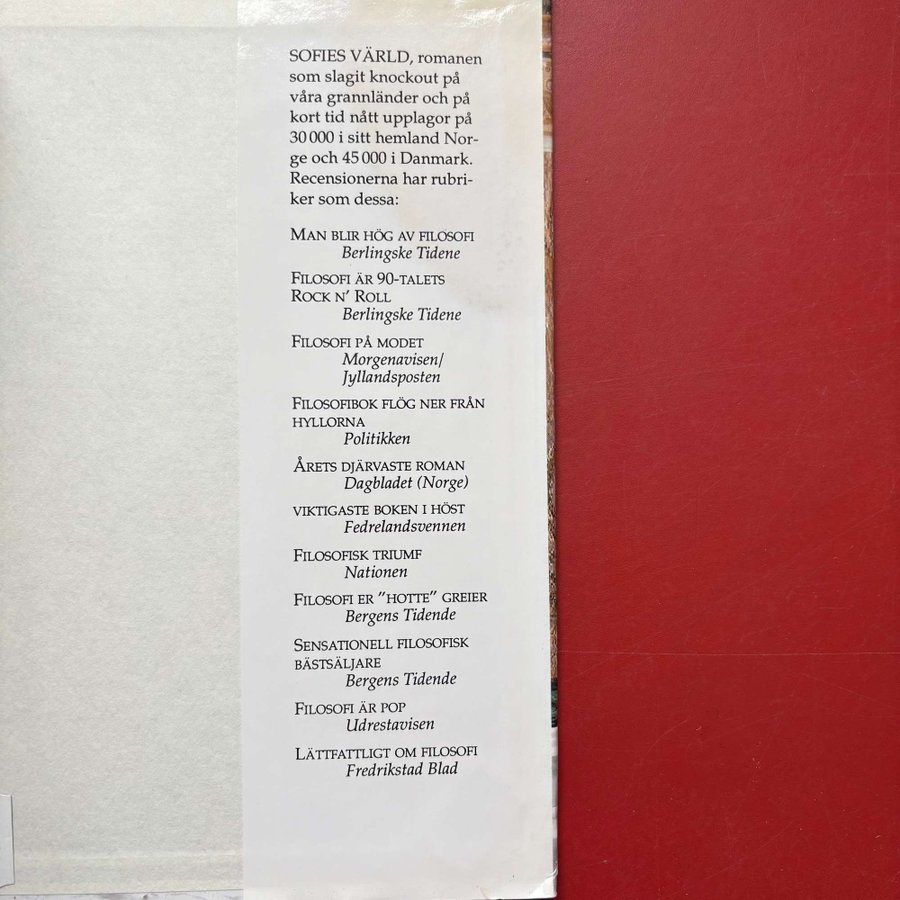 SOFIES VÄRLD, romanen
som slagit knockout på
våra grannländer och på
kort tid nått upplagor på
30 000 i sitt hemland Nor-
ge och 45 000 i Danmark.
Recensionerna har rubri-
ker som dessa:
MAN BLIR HÖG AV FILOSOFI
Berlingske Tidene
FILOSOFI ÄR 90-TALETS
ROCK N' ROLL
Berlingske Tidene
FILOSOFI PÅ MODET
Morgenavisen/
Jyllandsposten
FILOSOFIBOK FLÖG NER FRÅN
HYLLORNA
Politikken
ÅRETS DJÄRVASTE ROMAN
Dagbladet (Norge)
VIKTIGASTE BOKEN I HÖST
Fedrelandsvennen
FILOSOFISK TRIUMF
Nationen
FILOSOFI ER "HOTTE" GREIER
Bergens Tidende
SENSATIONELL FILOSOFISK
BÄSTSÄLJARE
Bergens Tidende
FILOSOFI ÄR POP
Udrestavisen
LÄTTFATTLIGT OM FILOSOFI
Fredrikstad Blad